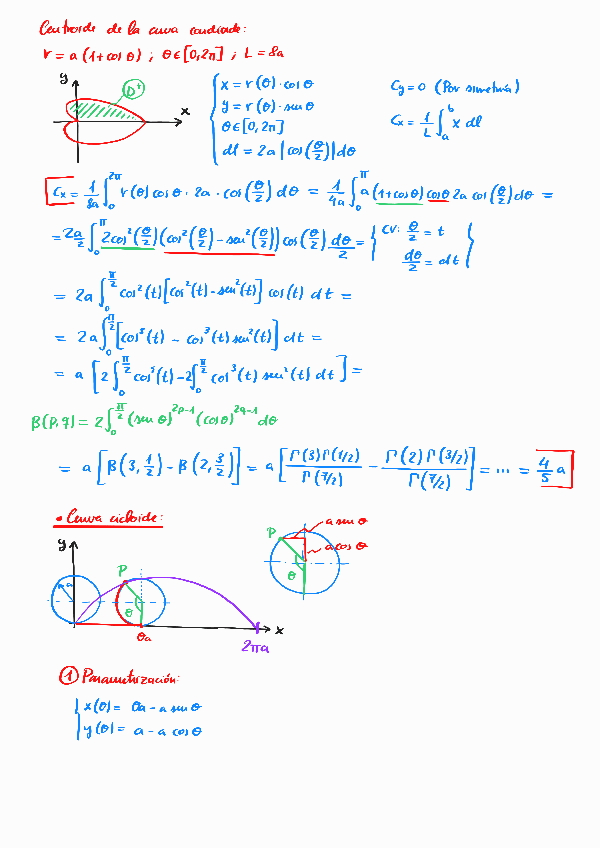 Centroide de la curva cardioide:
r = a (1+cos θ) ; θ∈[0,2π] ; L = 8a
y
D⁺
x
x = r(θ)·cosθ
y = r(θ)·senθ
θ∈[0,2π]
dl = 2a |cos(θ/2)| dθ
Cy = 0 (Por simetría)
Cx = 1/L ∫_a^b x dl
Cx = 1/8a ∫_0^{2π} r(θ) cosθ · 2a · cos(θ/2) dθ = 1/4a ∫_0^π a (1+cosθ) cosθ 2a cos(θ/2) dθ =
= 2a/2 ∫_0^π 2cos²(θ/2) (cos²(θ/2) - sen²(θ/2)) cos(θ/2) dθ/2 = { CV: θ/2 = t
dθ/2 = dt }
= 2a ∫_0^{π/2} cos²(t) [cos²(t) - sen²(t)] cos(t) dt =
= 2a ∫_0^{π/2} [cos⁵(t) - cos³(t) sen²(t)] dt =
= a [2 ∫_0^{π/2} cos⁵(t) - 2 ∫_0^{π/2} cos³(t) sen²(t) dt] =
β(p,q) = 2 ∫_0^{π/2} (sen θ)^{2p-1} (cosθ)^{2q-1} dθ
= a [β(3, 1/2) - β(2, 3/2)] = a [Γ(3)Γ(1/2) / Γ(7/2) - Γ(2)Γ(3/2) / Γ(7/2)] = ... = 4/5 a
• Curva cicloide:
y
a
P
θ
θa
x
2πa
P
a sen θ
a cos θ
θ
① Parametrización:
x(θ) = θa - a sen θ
y(θ) = a - a cos θ